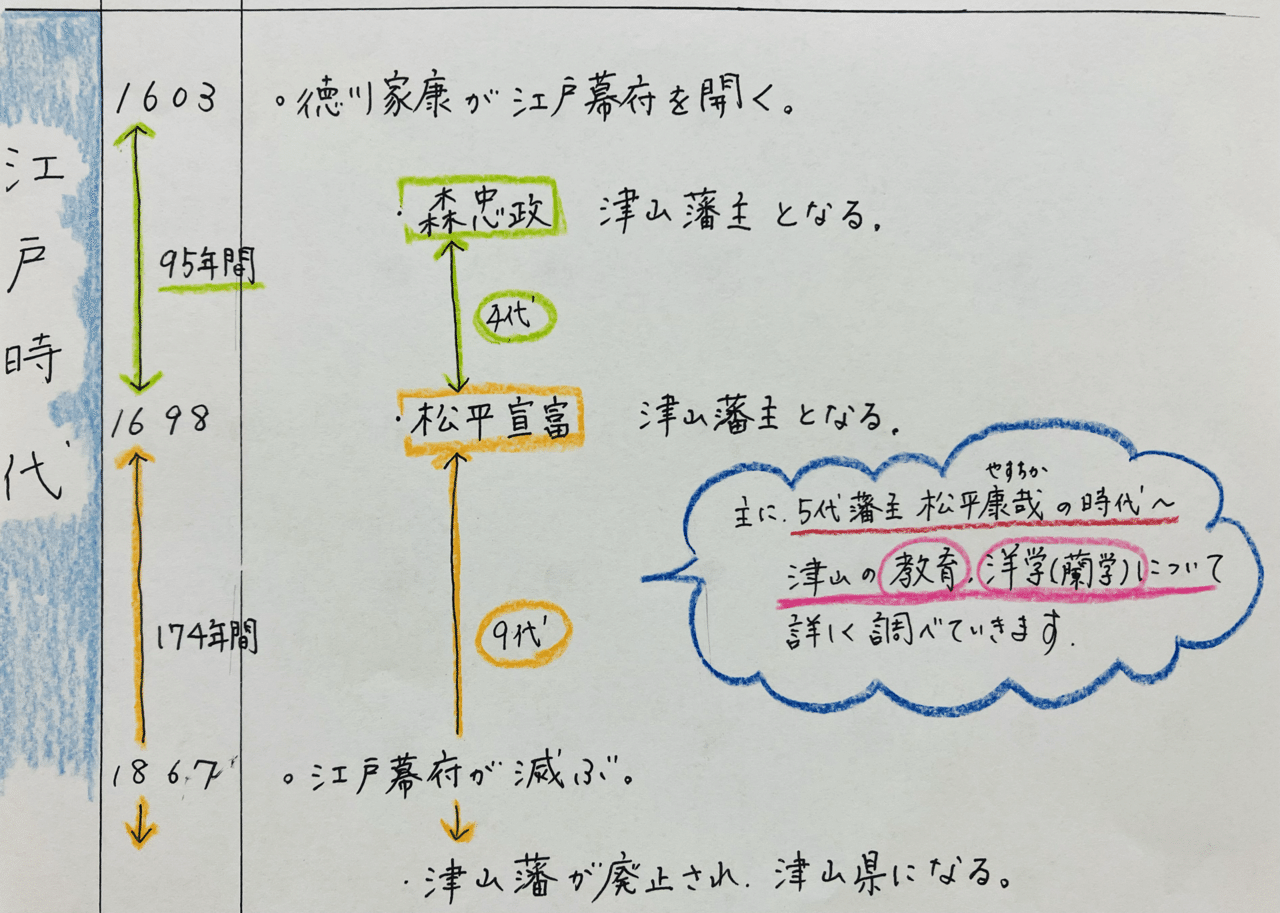 江戸時代
1603
。徳川家康が江戸幕府を開く。
・森忠政 津山藩主となる.
95年間
4代
1698
・松平宣富 津山藩主となる.
やすちか
主に.5代藩主 松平康哉の時代~
津山の教育、洋学(蘭学)について
詳しく調べていきます.
174年間
9代
1867
。江戸幕府が滅ぶ。
・津山藩が廃止され.津山県になる。